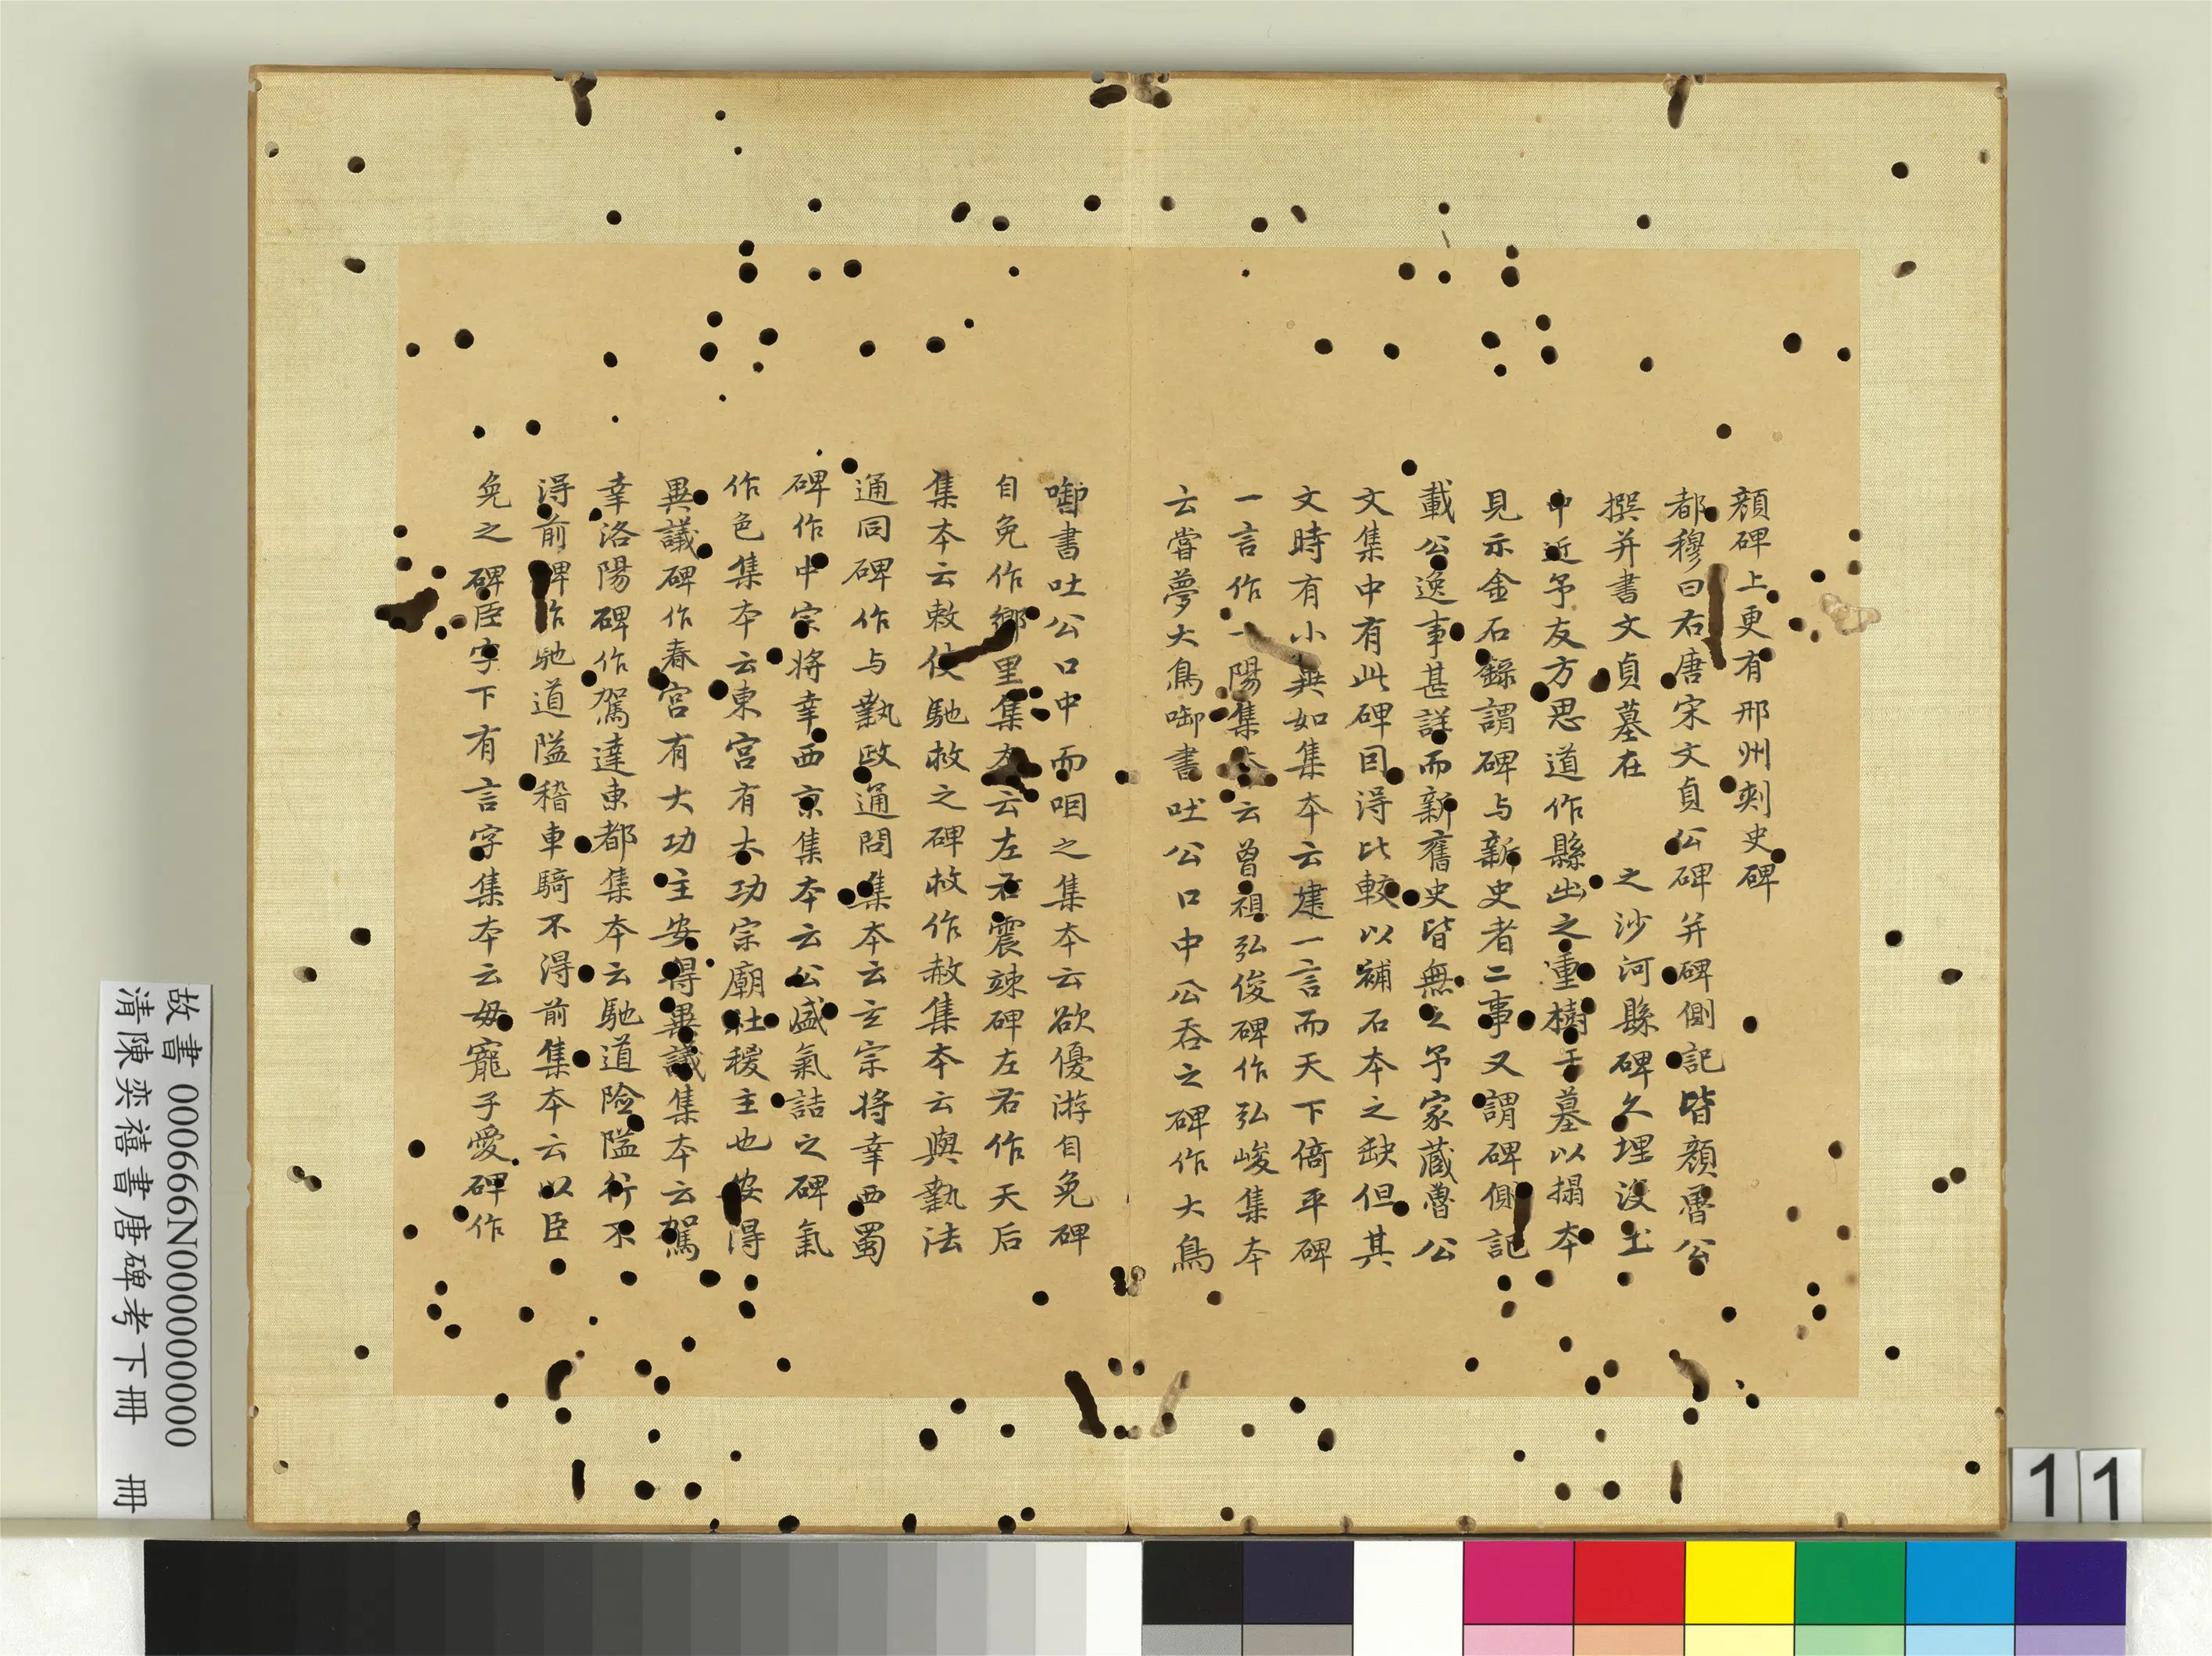 顏碑上更有邢州刺史碑
都穆曰右唐宋文貞公碑并碑側記皆顏魯公
撰并書文貞墓在 之沙河縣碑久埋沒土
中近予友方思道作縣出之重樹于墓以搨本
見示金石錄謂碑与新史者二事又謂碑側記
載公逸事甚詳而新舊史皆無之予家藏魯公
文集中有此碑因得比較以補石本之缺但其
文時有小異如集本云建一言而天下倚平碑
一言作一陽集本云曾祖弘俊碑作弘峻集本
云嘗夢大鳥啣書吐公口中公吞之碑作大鳥
啣書吐公口中而咽之集本云欲優游自免碑
自免作鄉里集本云左右震竦碑左右作天后
集本云敕使馳救之碑救作赦集本云與執法
通同碑作与執政通問集本云玄宗將幸西蜀
碑作中宗將幸西京集本云公盛氣詰之碑氣
作色集本云東宮有大功宗廟社稷主也安得
異議碑作春宮有大功主安得異議集本云駕
幸洛陽碑作駕達東都集本云馳道險隘行不
得前碑作馳道隘稽車騎不得前集本云以臣
免之碑臣字下有言字集本云毋寵子愛碑作
故書 000666N000000000
清陳奕禧書唐碑考下冊 冊
11